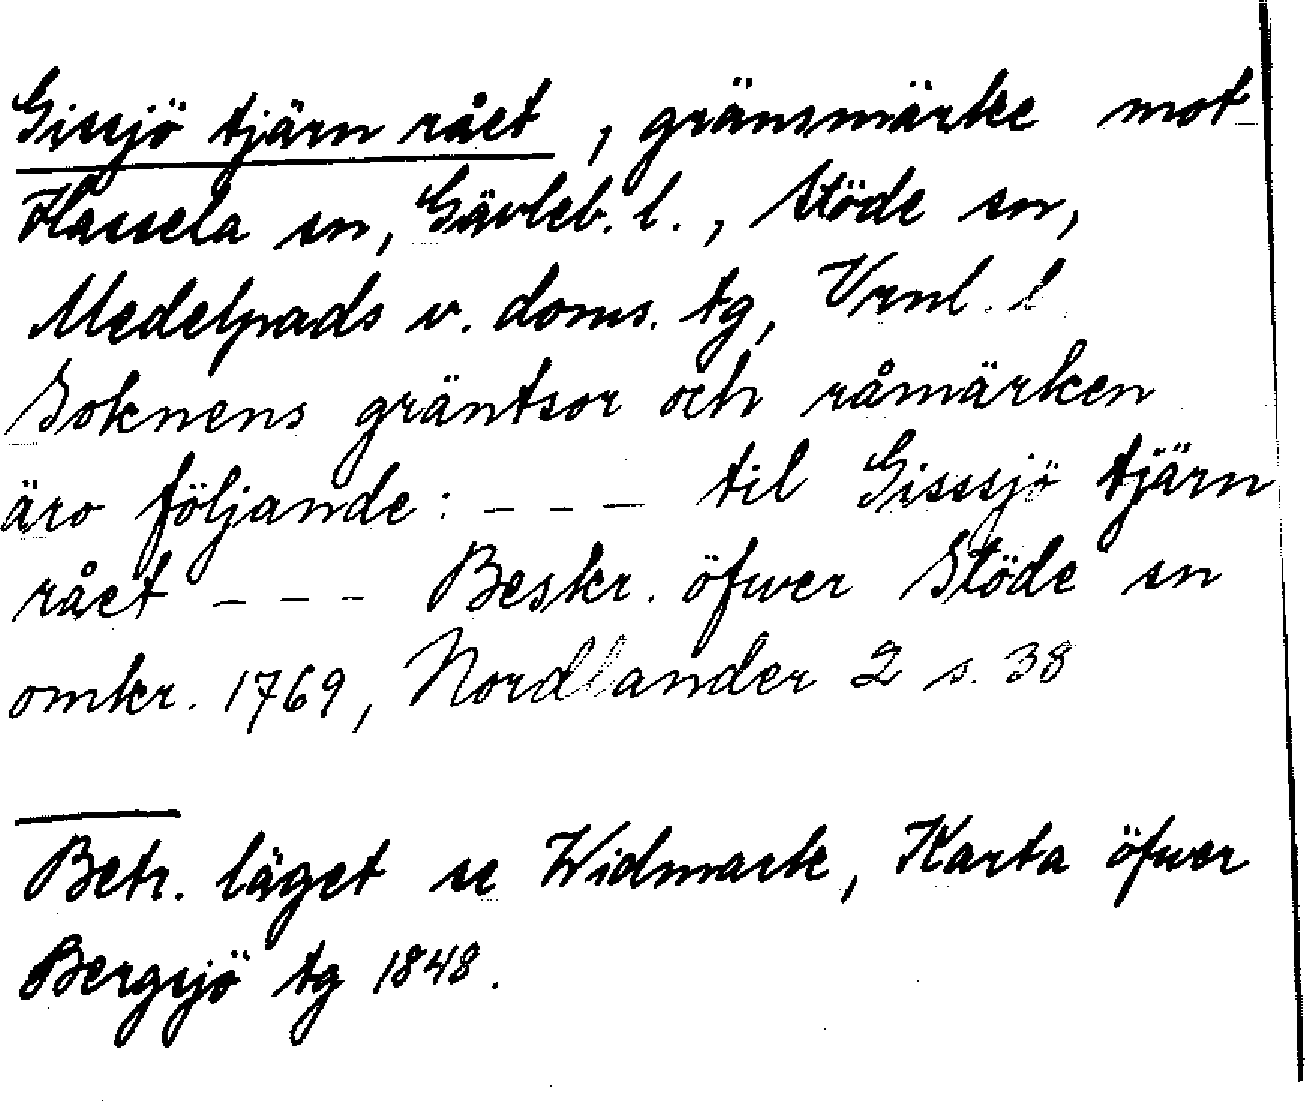 Gissjö tjärn rået, gränsmärke mot
Hassela sn, Gävleb. l., Stöde sn,
Medelpads v. doms. tg, Vrnl. l
Soknens gräntsor och råmärken
äro följande: - - - til Gisssjö tjärn
rået - - - Beskr. öfwer Stöde sn
omkr. 1769, Nordlander 2 s. 38
Betr. läget se Widmark, Karta öfwer
Bergsjö tg 1848.